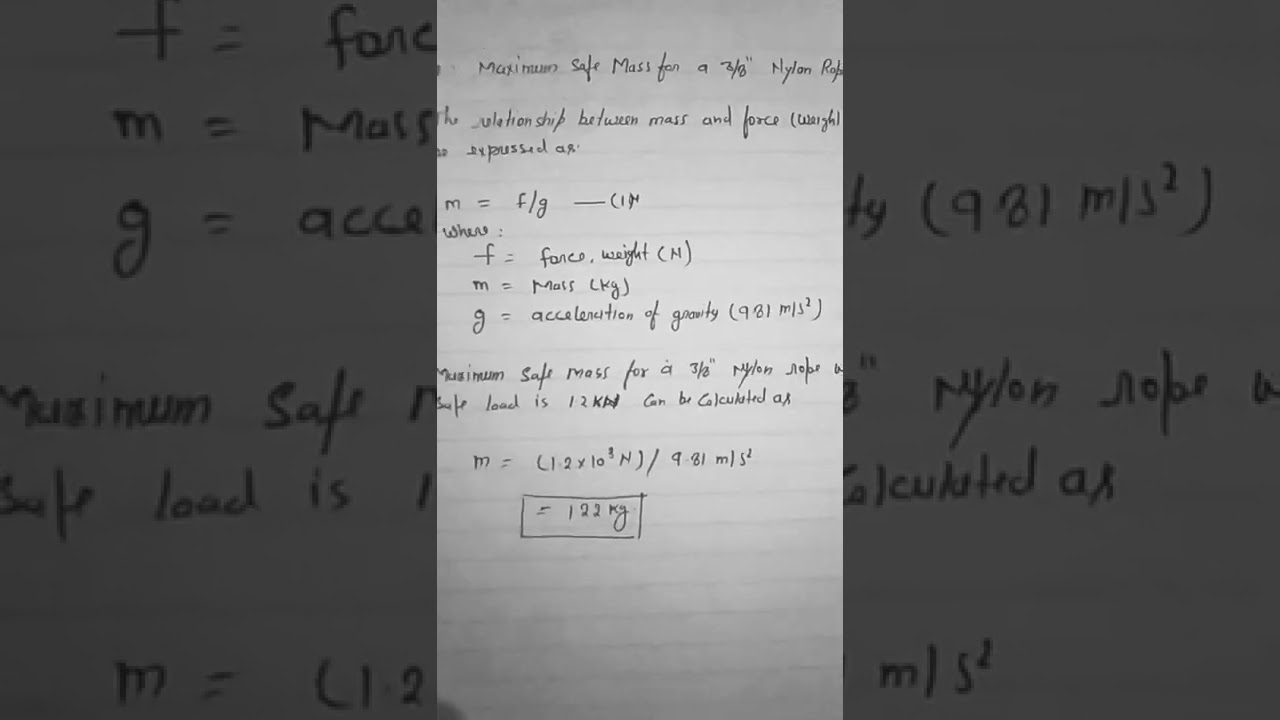 Maximum Safe Mass for a 3/8" Nylon Rop
he relationship between mass and force (weight)
expressed as
m = f/g — (1)
where:
f = force, weight (N)
m = Mass (kg)
g = acceleration of gravity (9 81 m/s²)
Maximum Safe mass for a 3/8" Nylon rope w
Safe load is 1 2 kN Can be Calculated as
m = (1.2 x 10³ N) / 9.81 m/s²
= 122 kg